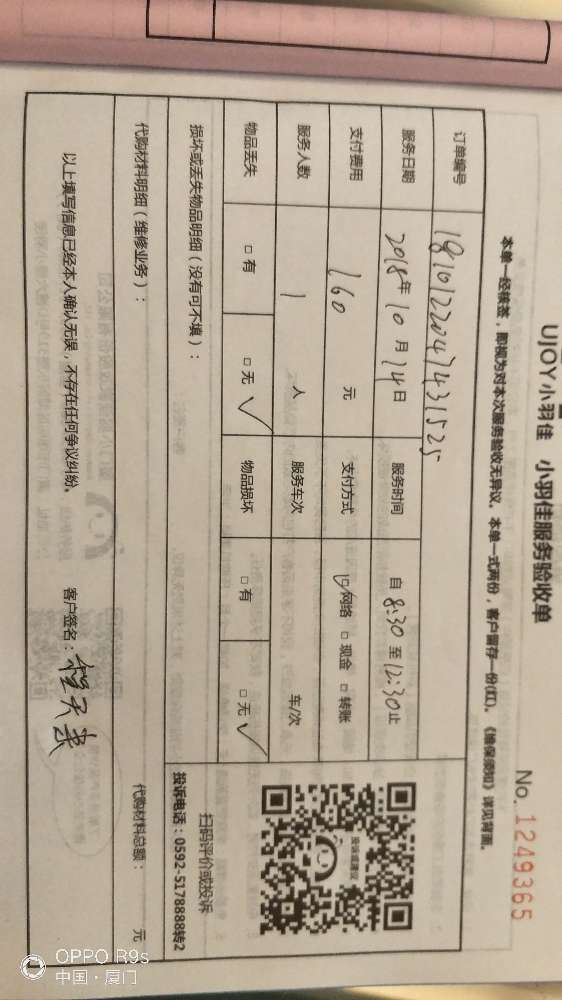 UJOY小羽佳 小羽佳服务验收单
No. 1249365
本单一经核签，即视为对本次服务验收无异议。本单一式两份，客户留存一份(红)。《维保须知》详见背面。
订单编号 1810122047431525
服务日期 2018年10月14日 服务时间 自8:30至12:30止
支付费用 160 元 支付方式 ☑网络 □现金 □转账
服务人数 1 人 服务车次 车/次
物品丢失 □有 □无✓ 物品损坏 □有 □无✓
损坏或丢失物品明细（没有可不填）：
投诉或建议
扫码评价或投诉
投诉电话：0592-5178888转2
代购材料明细（维修业务）： 代购材料总额： 元
以上填写信息已经本人确认无误，不存在任何争议纠纷。 客户签名：
OPPO R9s
中国·厦门